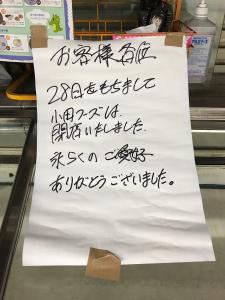 お客様各位
28日をもちまして
小田フーズは、
閉店いたしました。
永らくのご愛好
ありがとうございました。